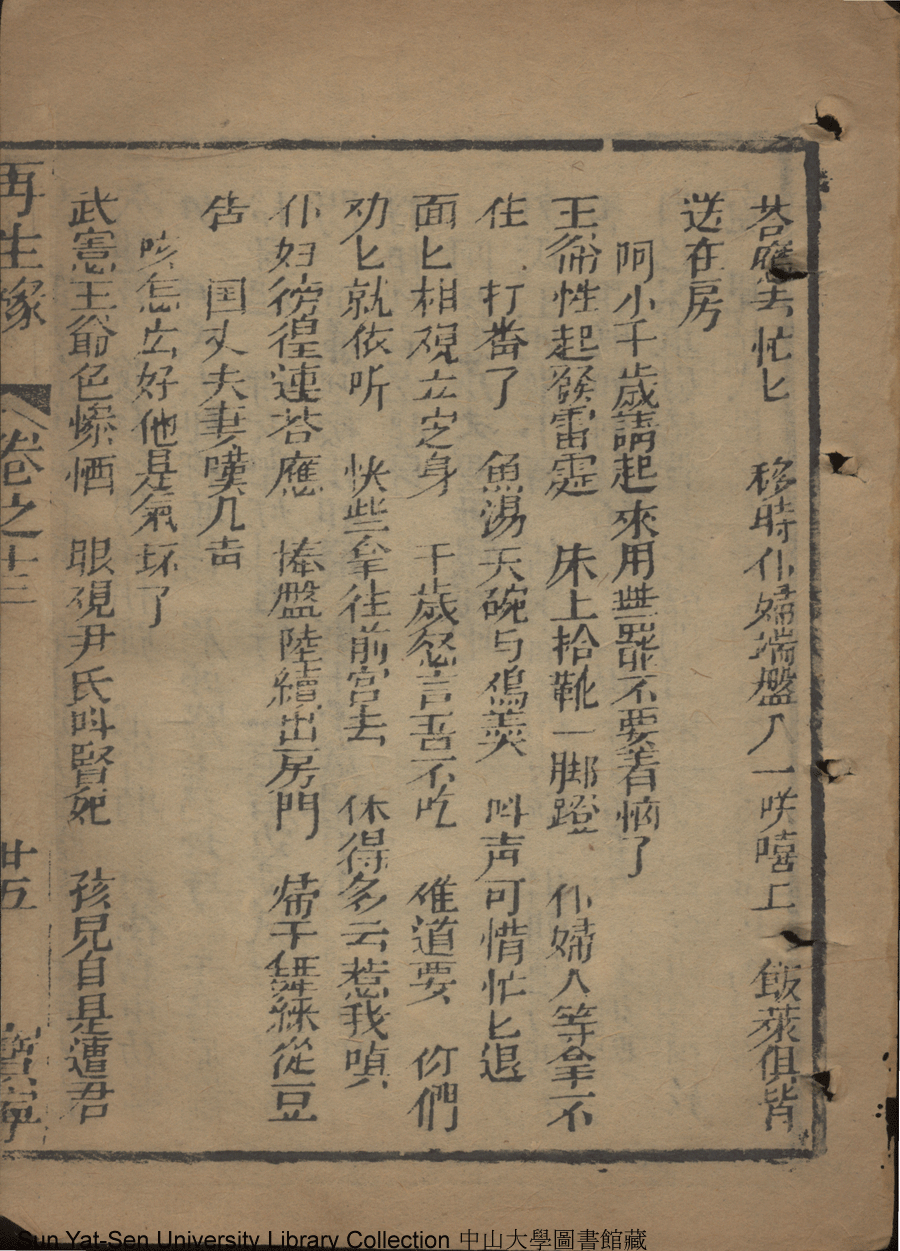 荅應去忙匕　移時仆婦端盤入一咲嘻上　飯菜俱皆
送在房
阿小千歲請起來用些罷不要着恼了
王爺性起發雷霆　床上拾靴一脚蹬　仆婦人等拿不
住　打番了　魚湯天碗与鳮羹　呌声可惜忙匕退
面匕相視立定身　千歲怒言吾不吃　难道要　你們
劝匕就依听　快些拿往前宫去　休得多云惹我嗔
仆妇徬徨連荅應　捧盤陸續出房門　㷌干從豆
告　国丈夫妻嘆几声
咳怎么好他是氣坏了
武憲王爺色惨恓　眼視尹氏呌賢妃　孩兒自是遭君
再生緣　卷之十三　廿五　寶寧
Sun Yat-Sen University Library Collection 中山大學圖書館藏